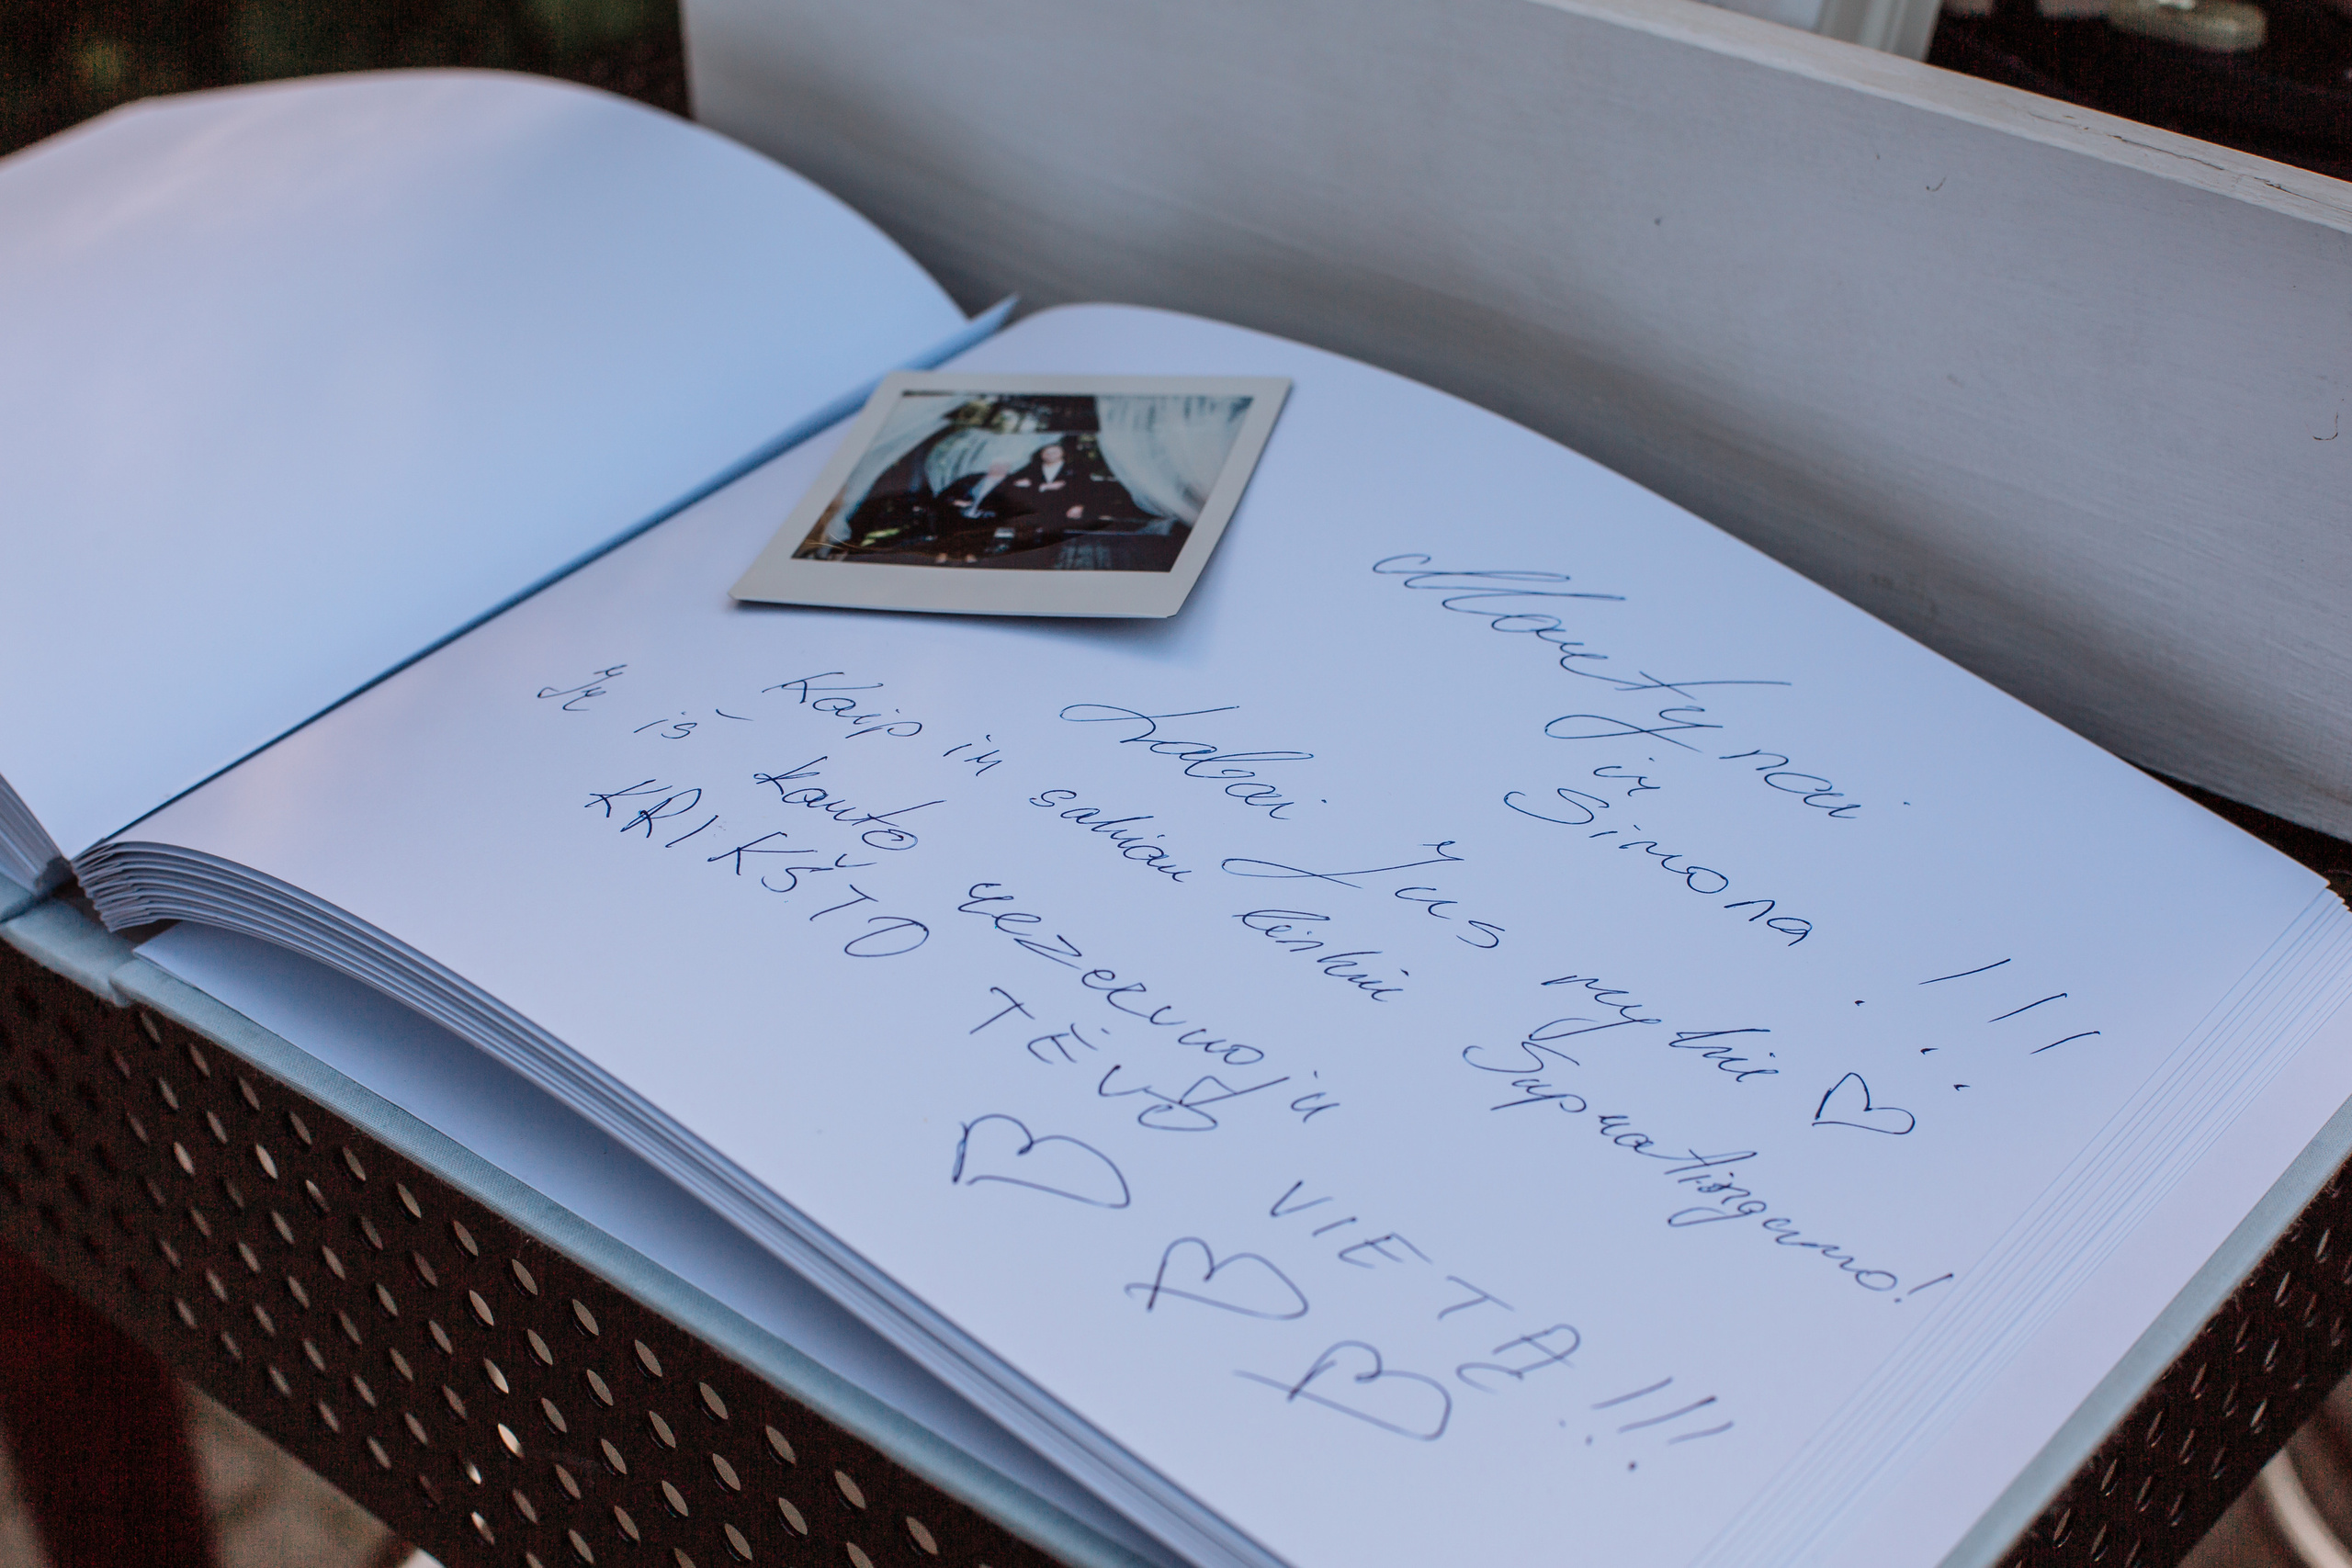 Martynai
ir
Simona !!!
Labai Jus myliu ♡
Kaip ir sakiau linkiu Supratingumo!
Ir iš karto rezervuoju
KRIKŠTO TĖVO VIETĄ !!!
♡ ♡ ♡